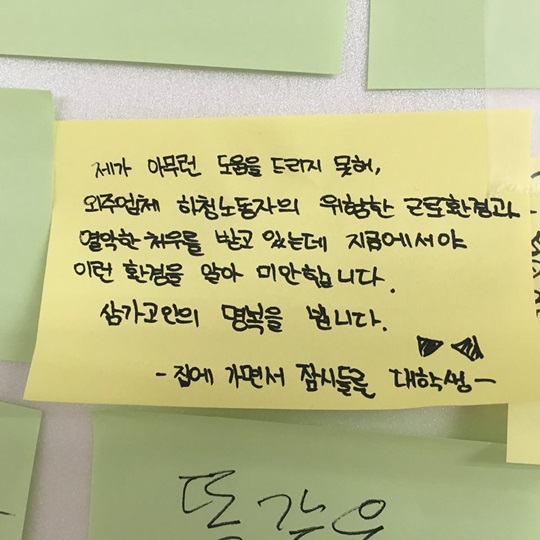 제가 아무런 도움을 드리지 못해,
외주업체 하청노동자의 위험한 근로환경과
열악한 처우를 받고 있는데 지금에서야
이런 환경을 알아 미안합니다.
삼가고인의 명복을 빕니다.
- 집에 가면서 잠시들른 대학생 -
똥같은